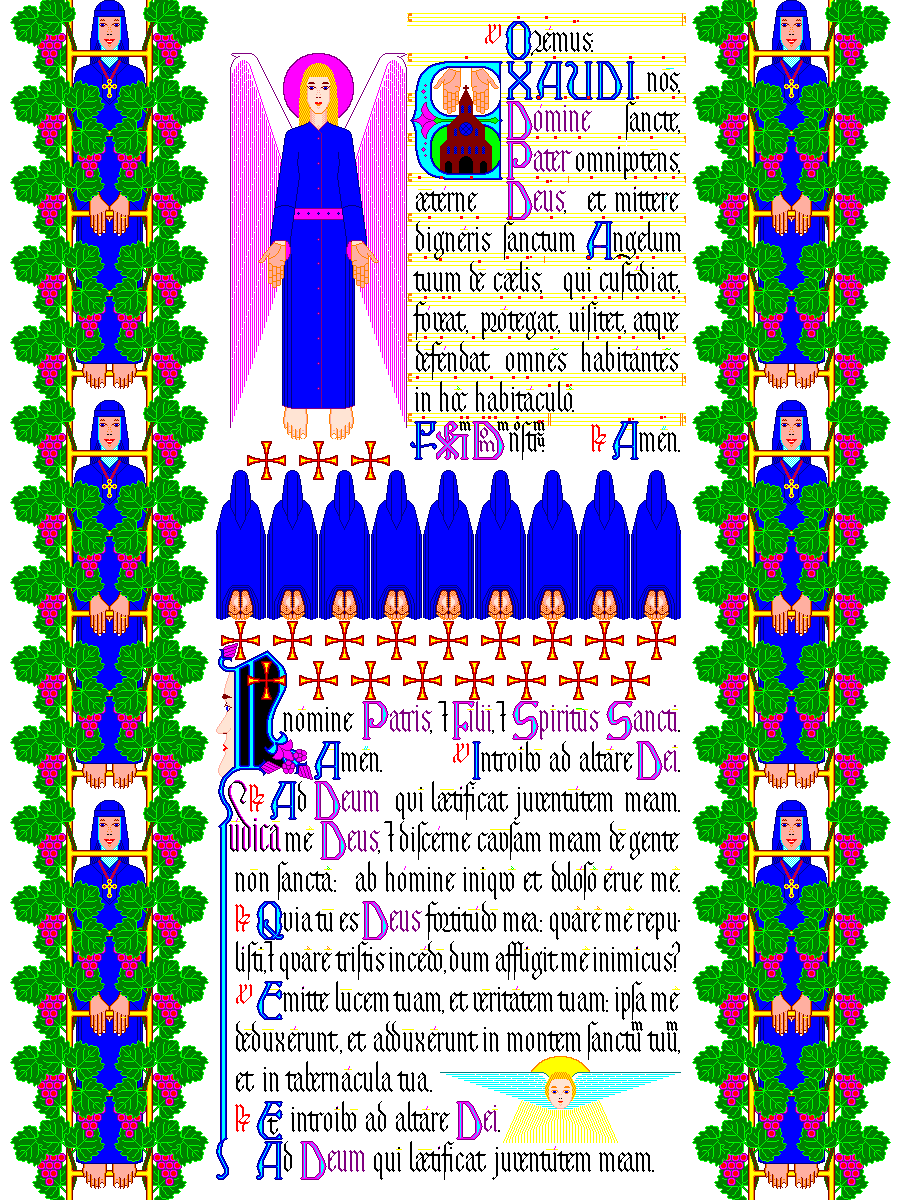 ℣ Orémus.
EXAUDI nos,
Domine sancte,
Pater omnipotens,
æterne Deus, et mittere
dignéris ſanctum Angelum
tuum de cælis, qui cuſtodiat,
foveat, prótegat, viſitet, atque
defendat omnes habitántes
in hoc habitáculo.
Amen.
nómine Patris, ⁊ Filii, ⁊ Spiritus Sancti.
Amen. ℣ Introibo ad altáre Dei.
℟ Ad Deum qui lætificat juventútem meam.
Judica me Deus, ⁊ diſcérne cauſam meam de gente
non ſancta: ab hómine iniquo et doloſo érue me.
℟ Quia tu es Deus fortitúdo mea: quáre me repu-
liſti, ⁊ quáre triſtis incédo, dum affligit me inimicus?
℣ Emitte lucem tuam, et veritátem tuam: ipſa me
deduxérunt, et adduxérunt in montem ſanctũ tuũ,
et in tabernácula tua.
℟ Et introibo ad altáre Dei.
Ad Deum qui lætificat juventútem meam.